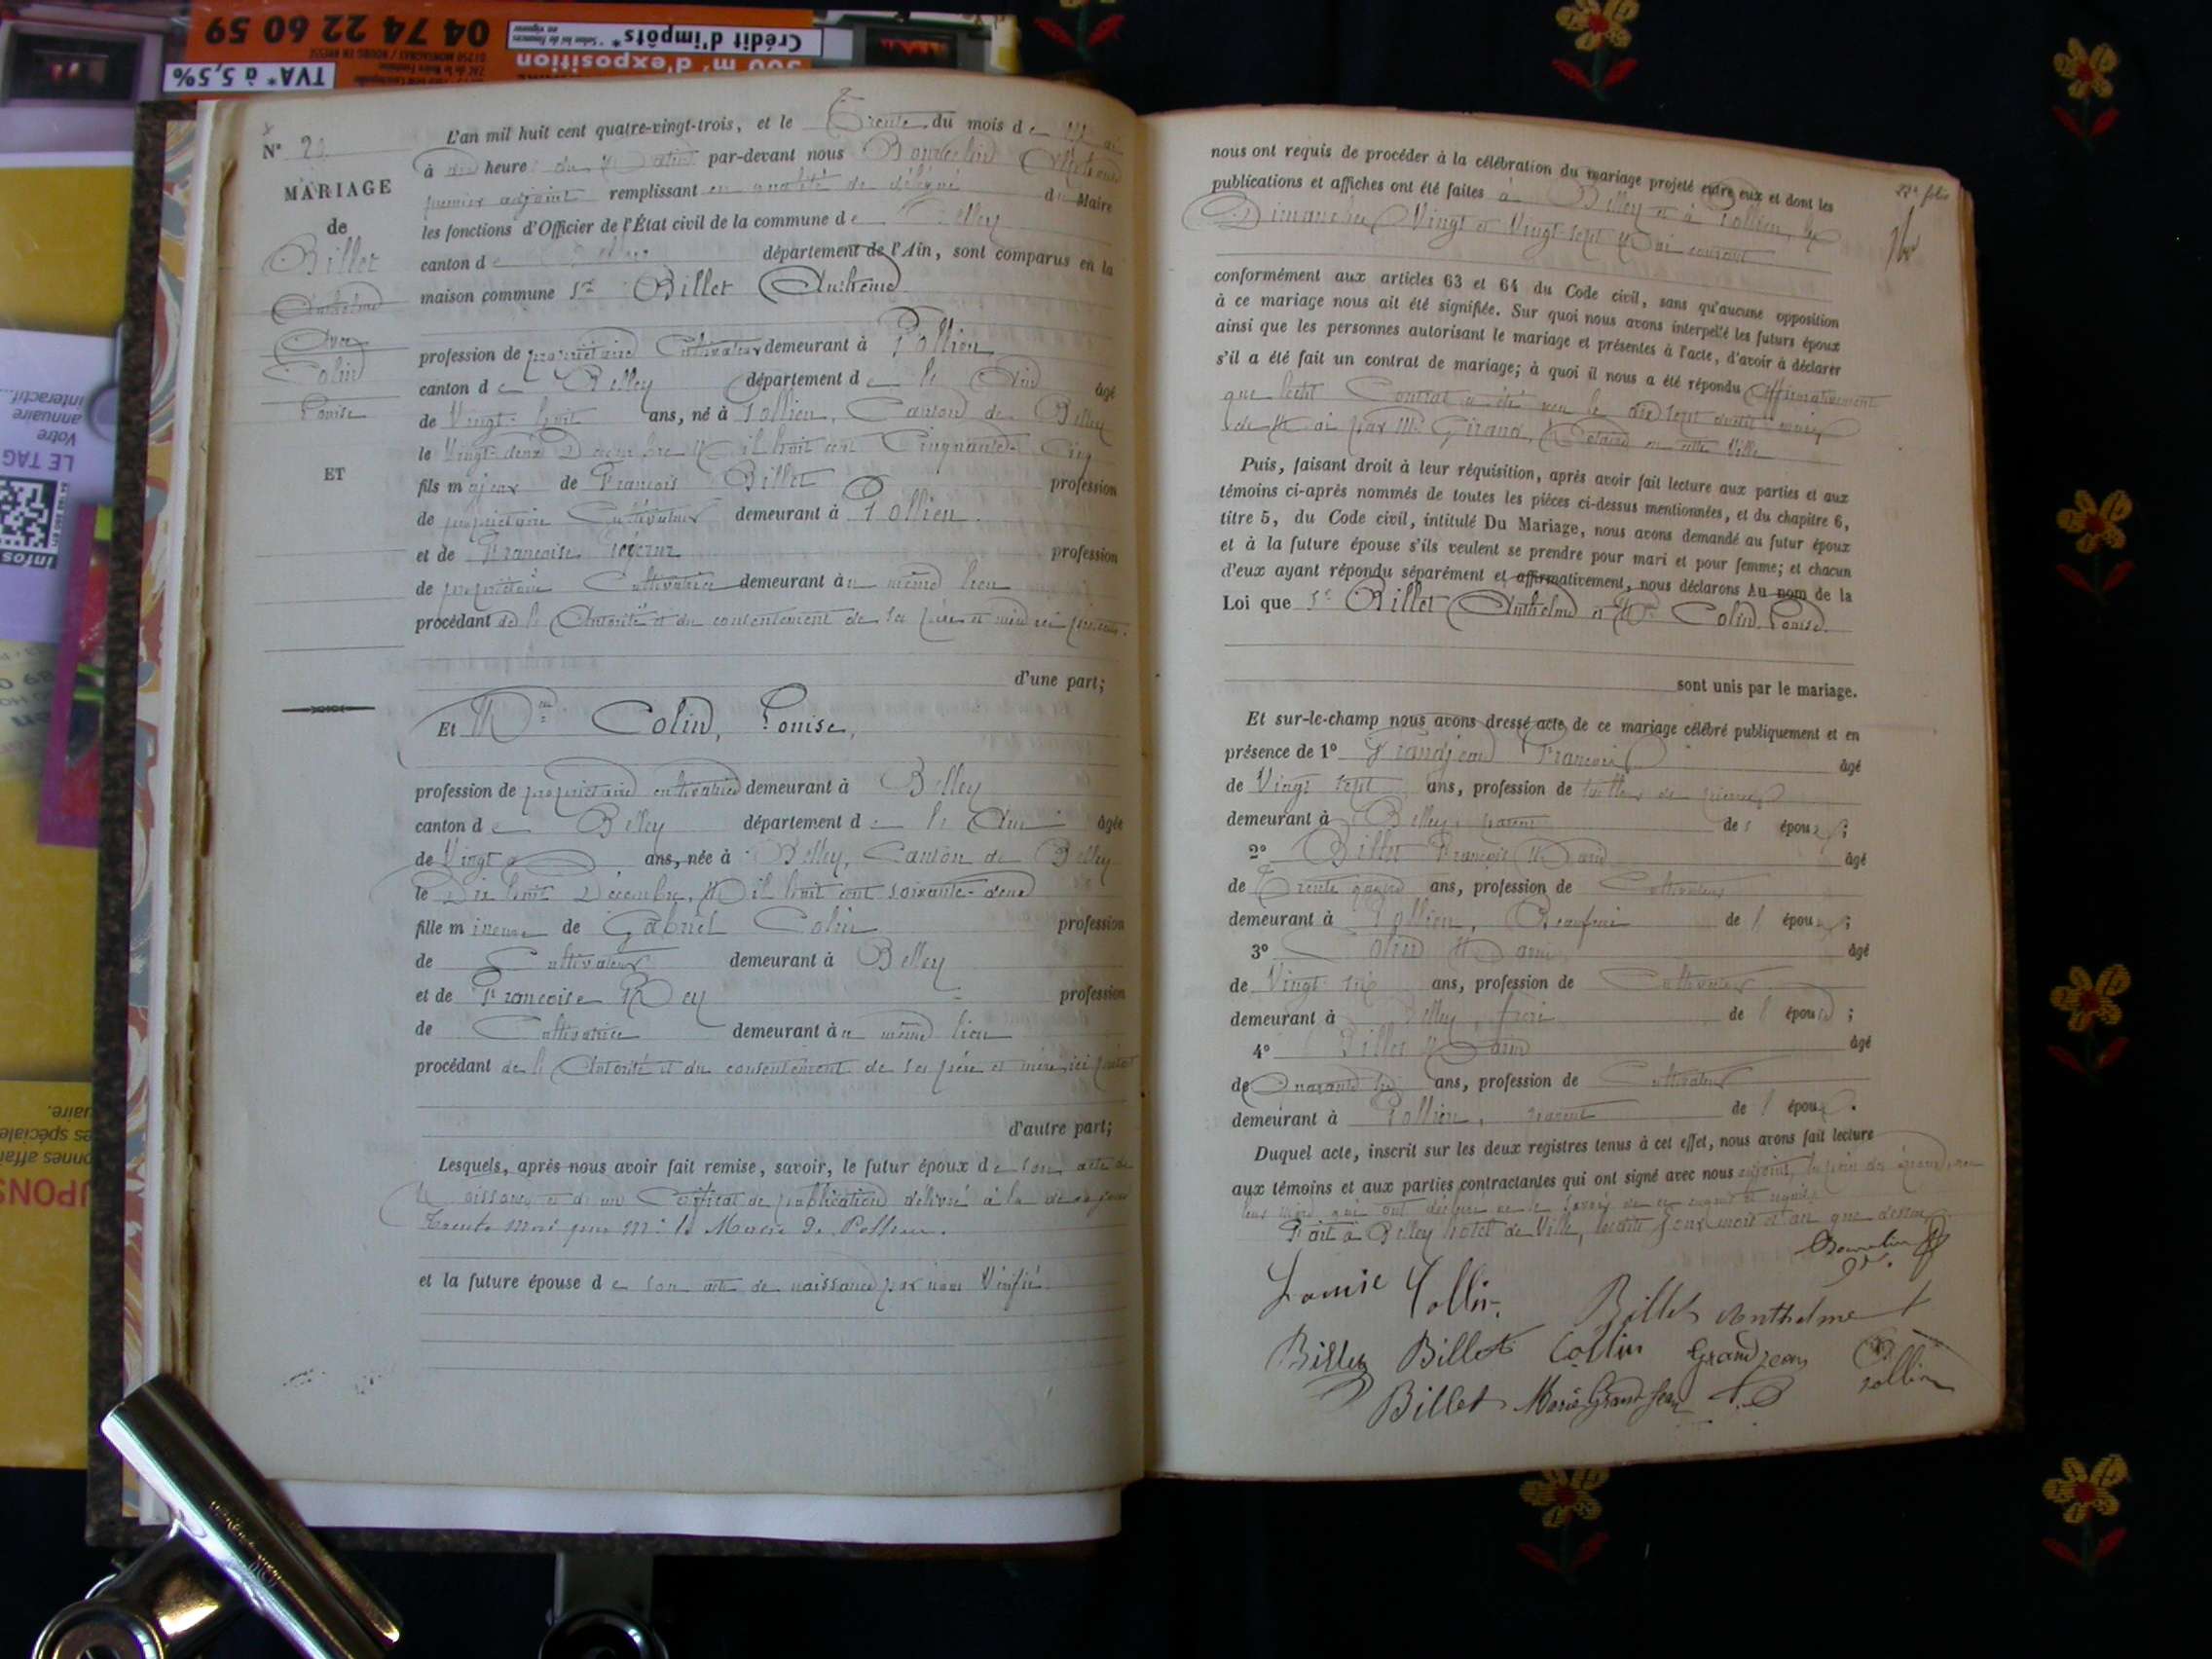 04 74 22 60 59
Crédit d'impôts*
TVA* à 5,5%
300 m² d'exposition
interactif...
annuaire
Votre
LE TAG
infos
N° 2
MARIAGE
de
Billet
Anthelme
Avec
Colin
Louise
ET
L'an mil huit cent quatre-vingt-trois, et le Trente du mois de Mai
à dix heures du Matin par-devant nous
premier adjoint remplissant en qualité de délégué du Maire
les fonctions d'Officier de l'État civil de la commune de Belley
canton de Belley département de l'Ain, sont comparus en la
maison commune Sr Billet Anthelme
profession de propriétaire Cultivateur demeurant à Pollieu
canton de Belley département de l'Ain âgé
de Vingt-huit ans, né à Pollieu, Canton de Belley
le Vingt-deux Décembre Mil huit cent Cinquante-Cinq
fils majeur de François Billet profession
de propriétaire Cultivateur demeurant à Pollieu.
et de Françoise profession
de propriétaire Cultivatrice demeurant au même lieu
procédant de l'Autorité et du consentement de ses père et mère ici présents.
d'une part;
Et Mlle Colin, Louise,
profession de propriétaire cultivatrice demeurant à Belley
canton de Belley département de l'Ain âgée
de Vingt ans, née à Belley, Canton de Belley
le Dix huit Décembre, Mil huit cent soixante-deux
fille mineure de Gabriel Colin profession
de Cultivateur demeurant à Belley
et de Françoise Rey profession
de Cultivatrice demeurant au même lieu
procédant de l'Autorité et du consentement de ses père et mère, ici présents
d'autre part;
Lesquels, après nous avoir fait remise, savoir, le futur époux de son acte de
Naissance et d'un Certificat de publication délivré à la date de ce jour
trente Mai par Mr le Maire de Pollieu.
et la future épouse de son acte de naissance par nous Vérifié.
22e folio
nous ont requis de procéder à la célébration du mariage projeté entre eux et dont les
publications et affiches ont été faites à Belley et à Pollieu, les
Dimanches Vingt et Vingt sept Mai courant
conformément aux articles 63 et 64 du Code civil, sans qu'aucune opposition
à ce mariage nous ait été signifiée. Sur quoi nous avons interpellé les futurs époux
ainsi que les personnes autorisant le mariage et présentes à l'acte, d'avoir à déclarer
s'il a été fait un contrat de mariage; à quoi il nous a été répondu Affirmativement
que ledit Contrat a été reçu le dix sept dudit mois
de Mai par Me Girand, Notaire en cette Ville
Puis, faisant droit à leur réquisition, après avoir fait lecture aux parties et aux
témoins ci-après nommés de toutes les pièces ci-dessus mentionnées, et du chapitre 6,
titre 5, du Code civil, intitulé Du Mariage, nous avons demandé au futur époux
et à la future épouse s'ils veulent se prendre pour mari et pour femme; et chacun
d'eux ayant répondu séparément et affirmativement, nous déclarons Au nom de la
Loi que Sr Billet Anthelme et Mlle Colin Louise.
sont unis par le mariage.
Et sur-le-champ nous avons dressé acte de ce mariage célébré publiquement et en
présence de 1° Grandjean François âgé
de Vingt sept ans, profession de tailleur de pierres
demeurant à Belley, parent de l'époux;
2° Billet François Marie âgé
de Trente quatre ans, profession de Cultivateur
demeurant à Pollieu, de l'époux;
3° Colin Marie âgé
de Vingt six ans, profession de Cultivateur
demeurant à Belley, frère de l'épouse;
4° Billet Marie âgé
de Quarante six ans, profession de Cultivateur
demeurant à Pollieu, parent de l'époux.
Duquel acte, inscrit sur les deux registres tenus à cet effet, nous avons fait lecture
aux témoins et aux parties contractantes qui ont signé avec nous adjoint, les pères des époux, non
leurs mères qui ont déclaré ne le savoir de ce enquis et requis.
Fait à Belley hôtel de Ville, lesdits jour mois et an que dessus.
Louise Collin
Billet Anthelme
Billet Billet Collin Grandjean
Collin
Billet Marie Grand Jean